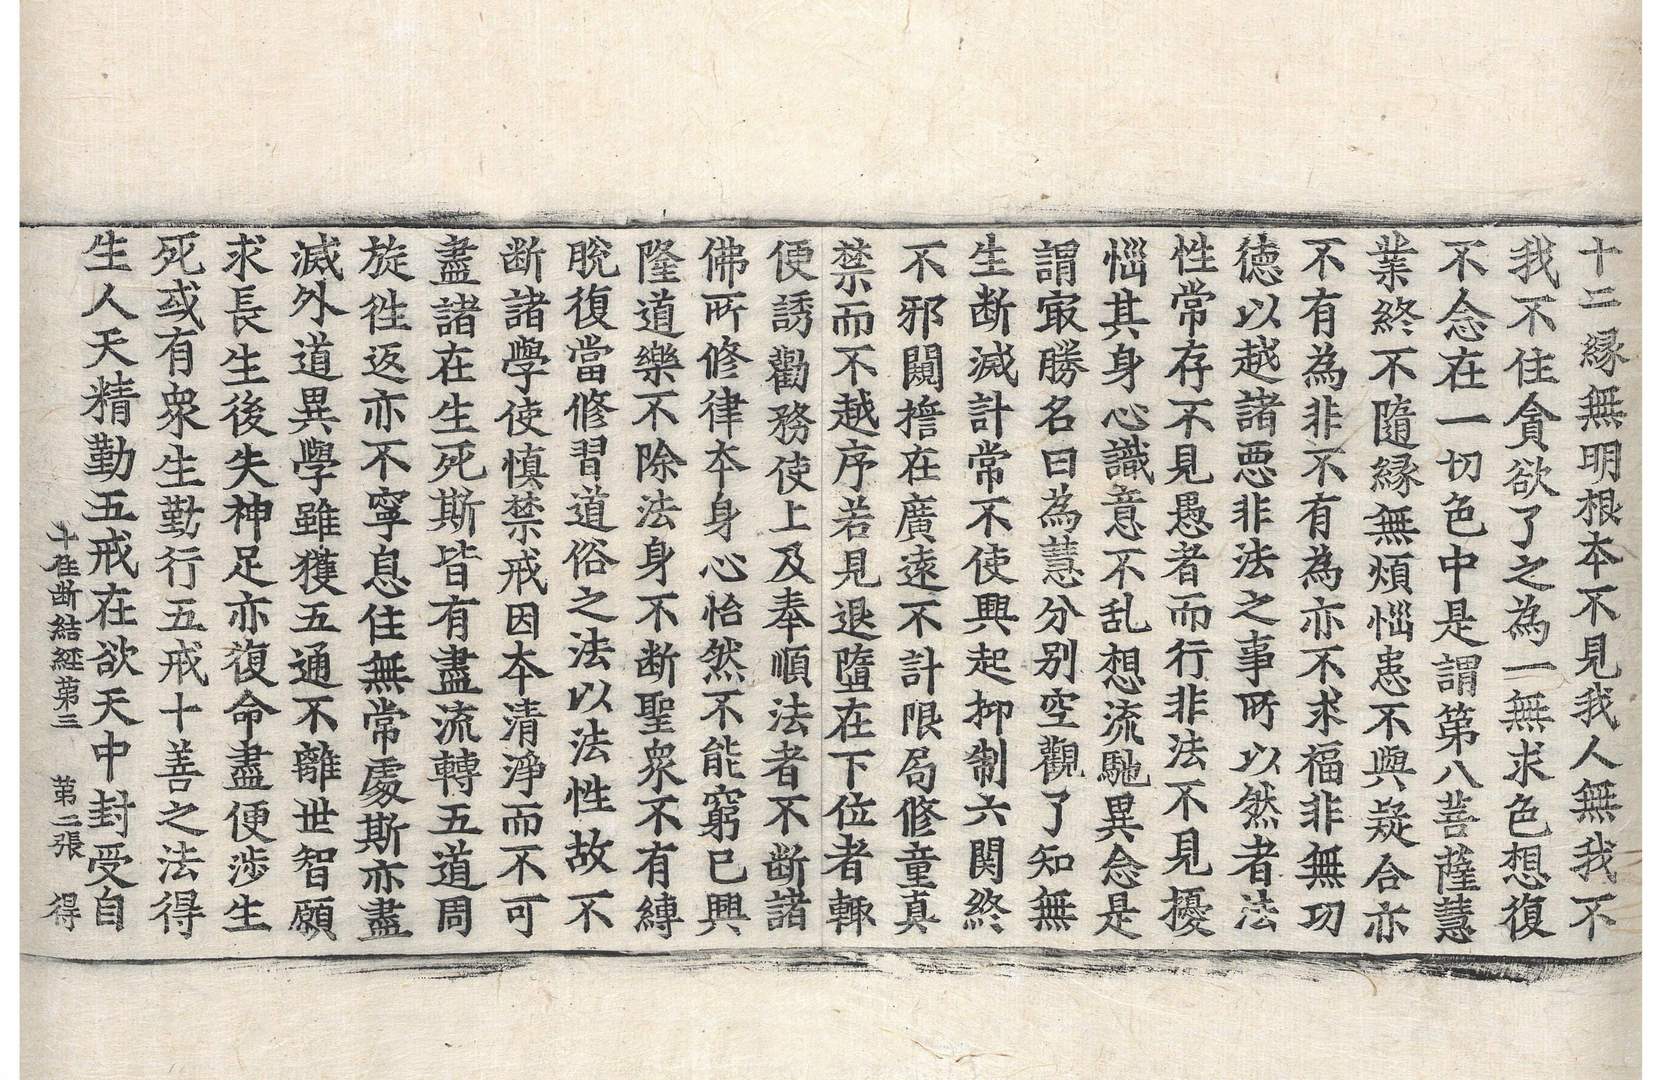 十二縁無明根本不見我人無我不
我不住貪欲了之為一無求色想復
不念在一切色中是謂第八菩薩慧
業終不隨縁無煩惱恚不與疑合亦
不有為非不有為亦不求福非無功
德以越諸惡非法之事所以然者法
性常存不見愚者而行非法不見擾
惱其身心識意不乱想流馳異念是
謂㝡勝名曰為慧分别空觀了知無
生断滅計常不使興起抑制六関終
不邪闚擔在廣遠不計限局修童真
禁而不越序若見退墮在下位者輙
便誘勸務使上及奉順法者不断諸
佛所修律夲身心怡然不能窮已興
隆道樂不除法身不断聖衆不有縛
脫復當修習道俗之法以法性故不
断諸學使慎禁戒因夲清淨而不可
盡諸在生死斯皆有盡流轉五道周
旋徃返亦不寧息住無常處斯亦盡
滅外道異學雖獲五通不離世智願
求長生後失神足亦復命盡便渉生
死或有衆生勤行五戒十善之法得
生人天精勤五戒在欲天中封受自
十住断結經第三　第二張　得